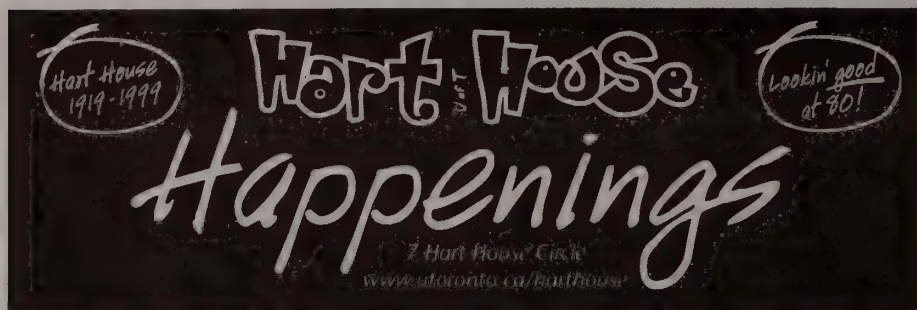 Hart House
1919-1999
Hart House
U of T
Lookin' good
at 80!
Happenings
7 Hart House Circle
www.utoronto.ca/harthouse